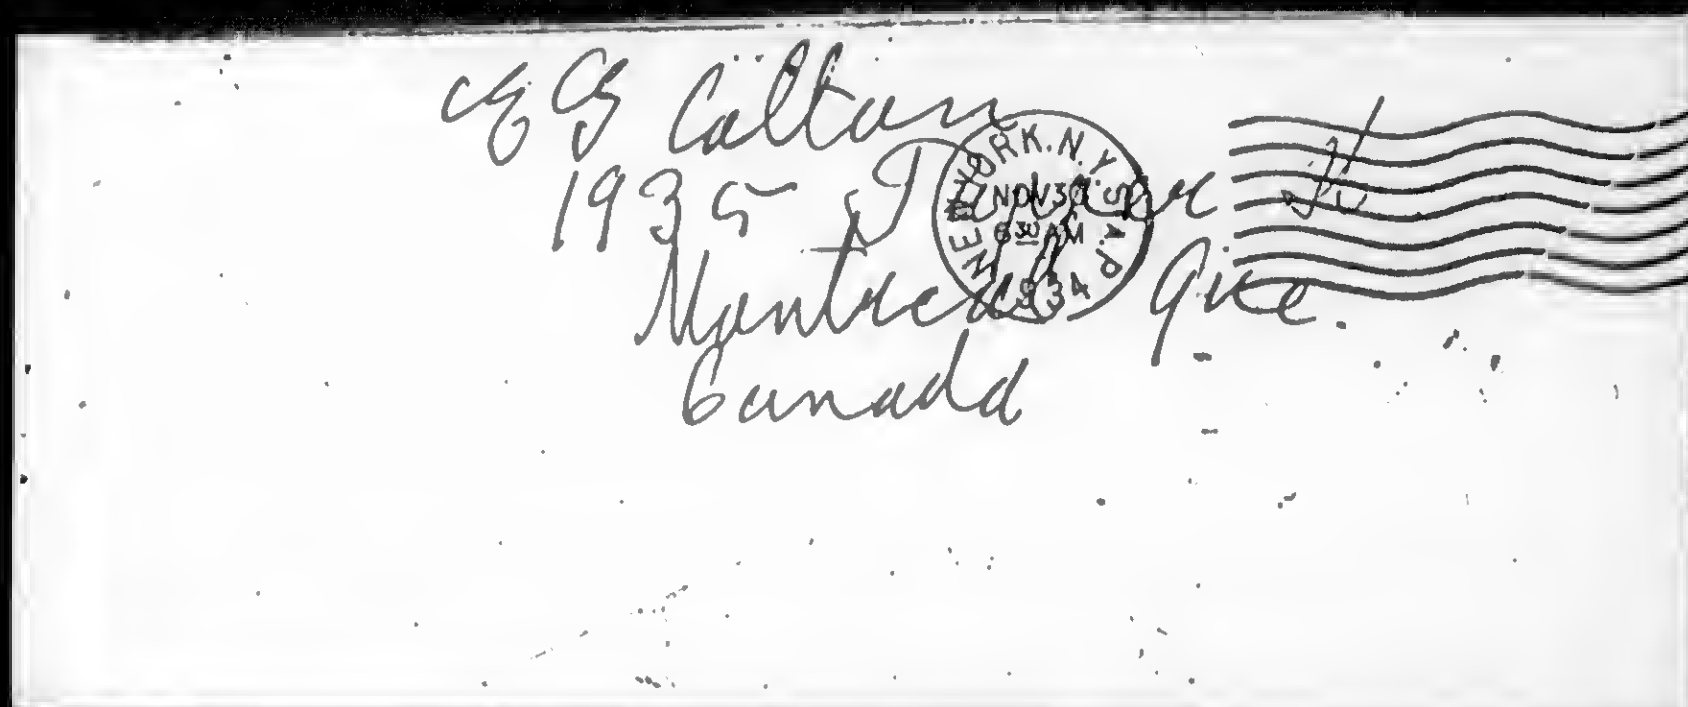 Colton
1935 Tupper St
Montreal Que.
Canada
NEW YORK, N.Y. P.A.S.
NOV 30
6 30 AM
1934